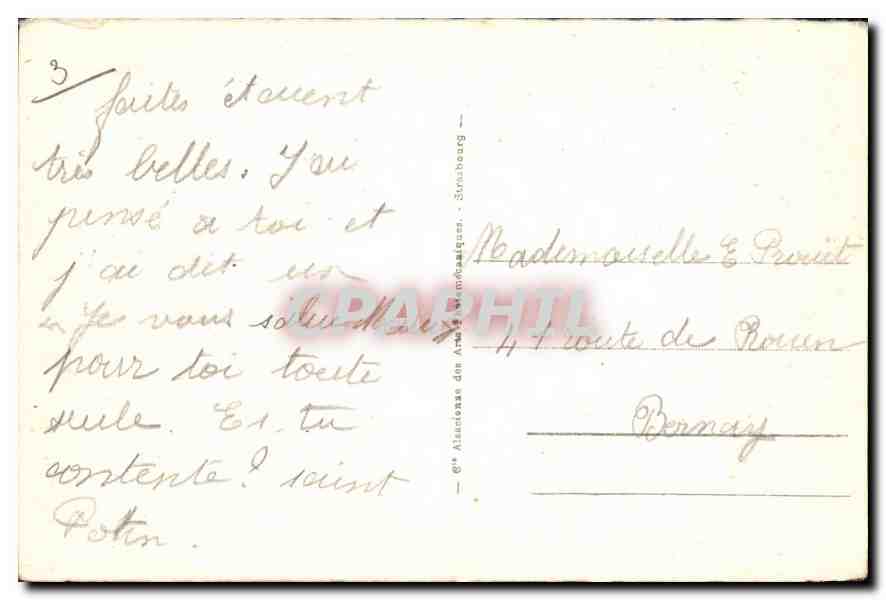 3
faites étaient
très belles. J'ai
pensé a toi et
j'ai dit un
" Je vous salue Marie
pour toi toute
seule. Es. tu
contente? saint
Potin.
— Cie Alsacienne des Arts Photomécaniques. - Strasbourg —
Mademoiselle E
41 route de Rouen
Bernay
CPAPHIL